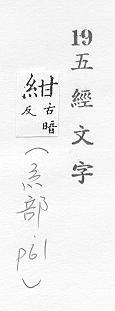 19
五經文字
紺
古暗反
(糸部.p61)